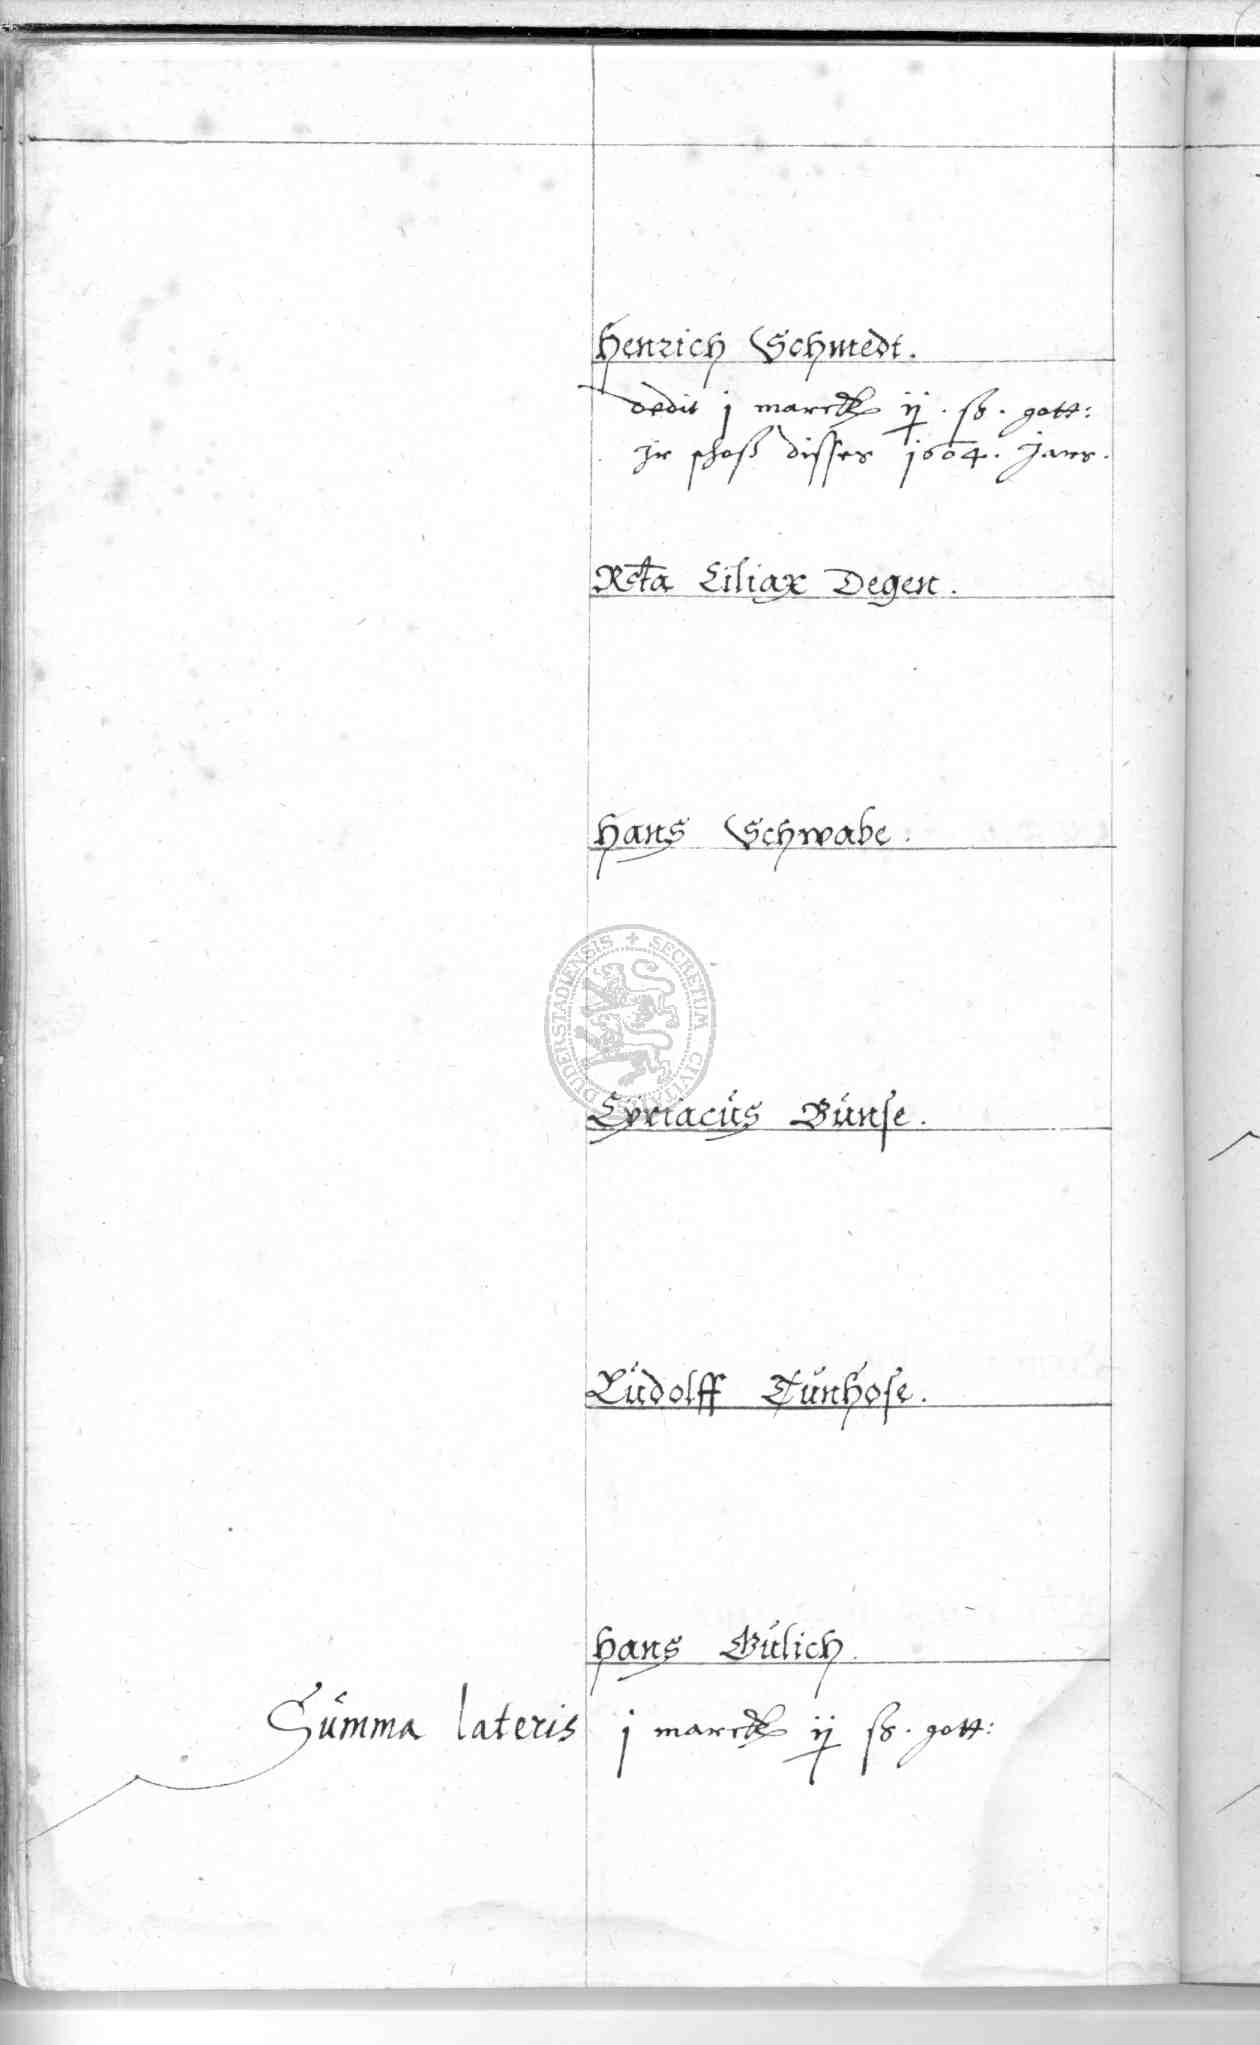 Henrich Schmedt.
dedit j marck ij. ß. gott:
Jr schoß disses 1604. Jars.
Rcta Ciliax Degen.
Hans Schwabe.
SECRETUM CIVITATIS DUDERSTADIENSIS
Cyriacus Bunse.
Ludolff Tunhose.
Hans Gulich.
Summa lateris j marck ij ß. gott: